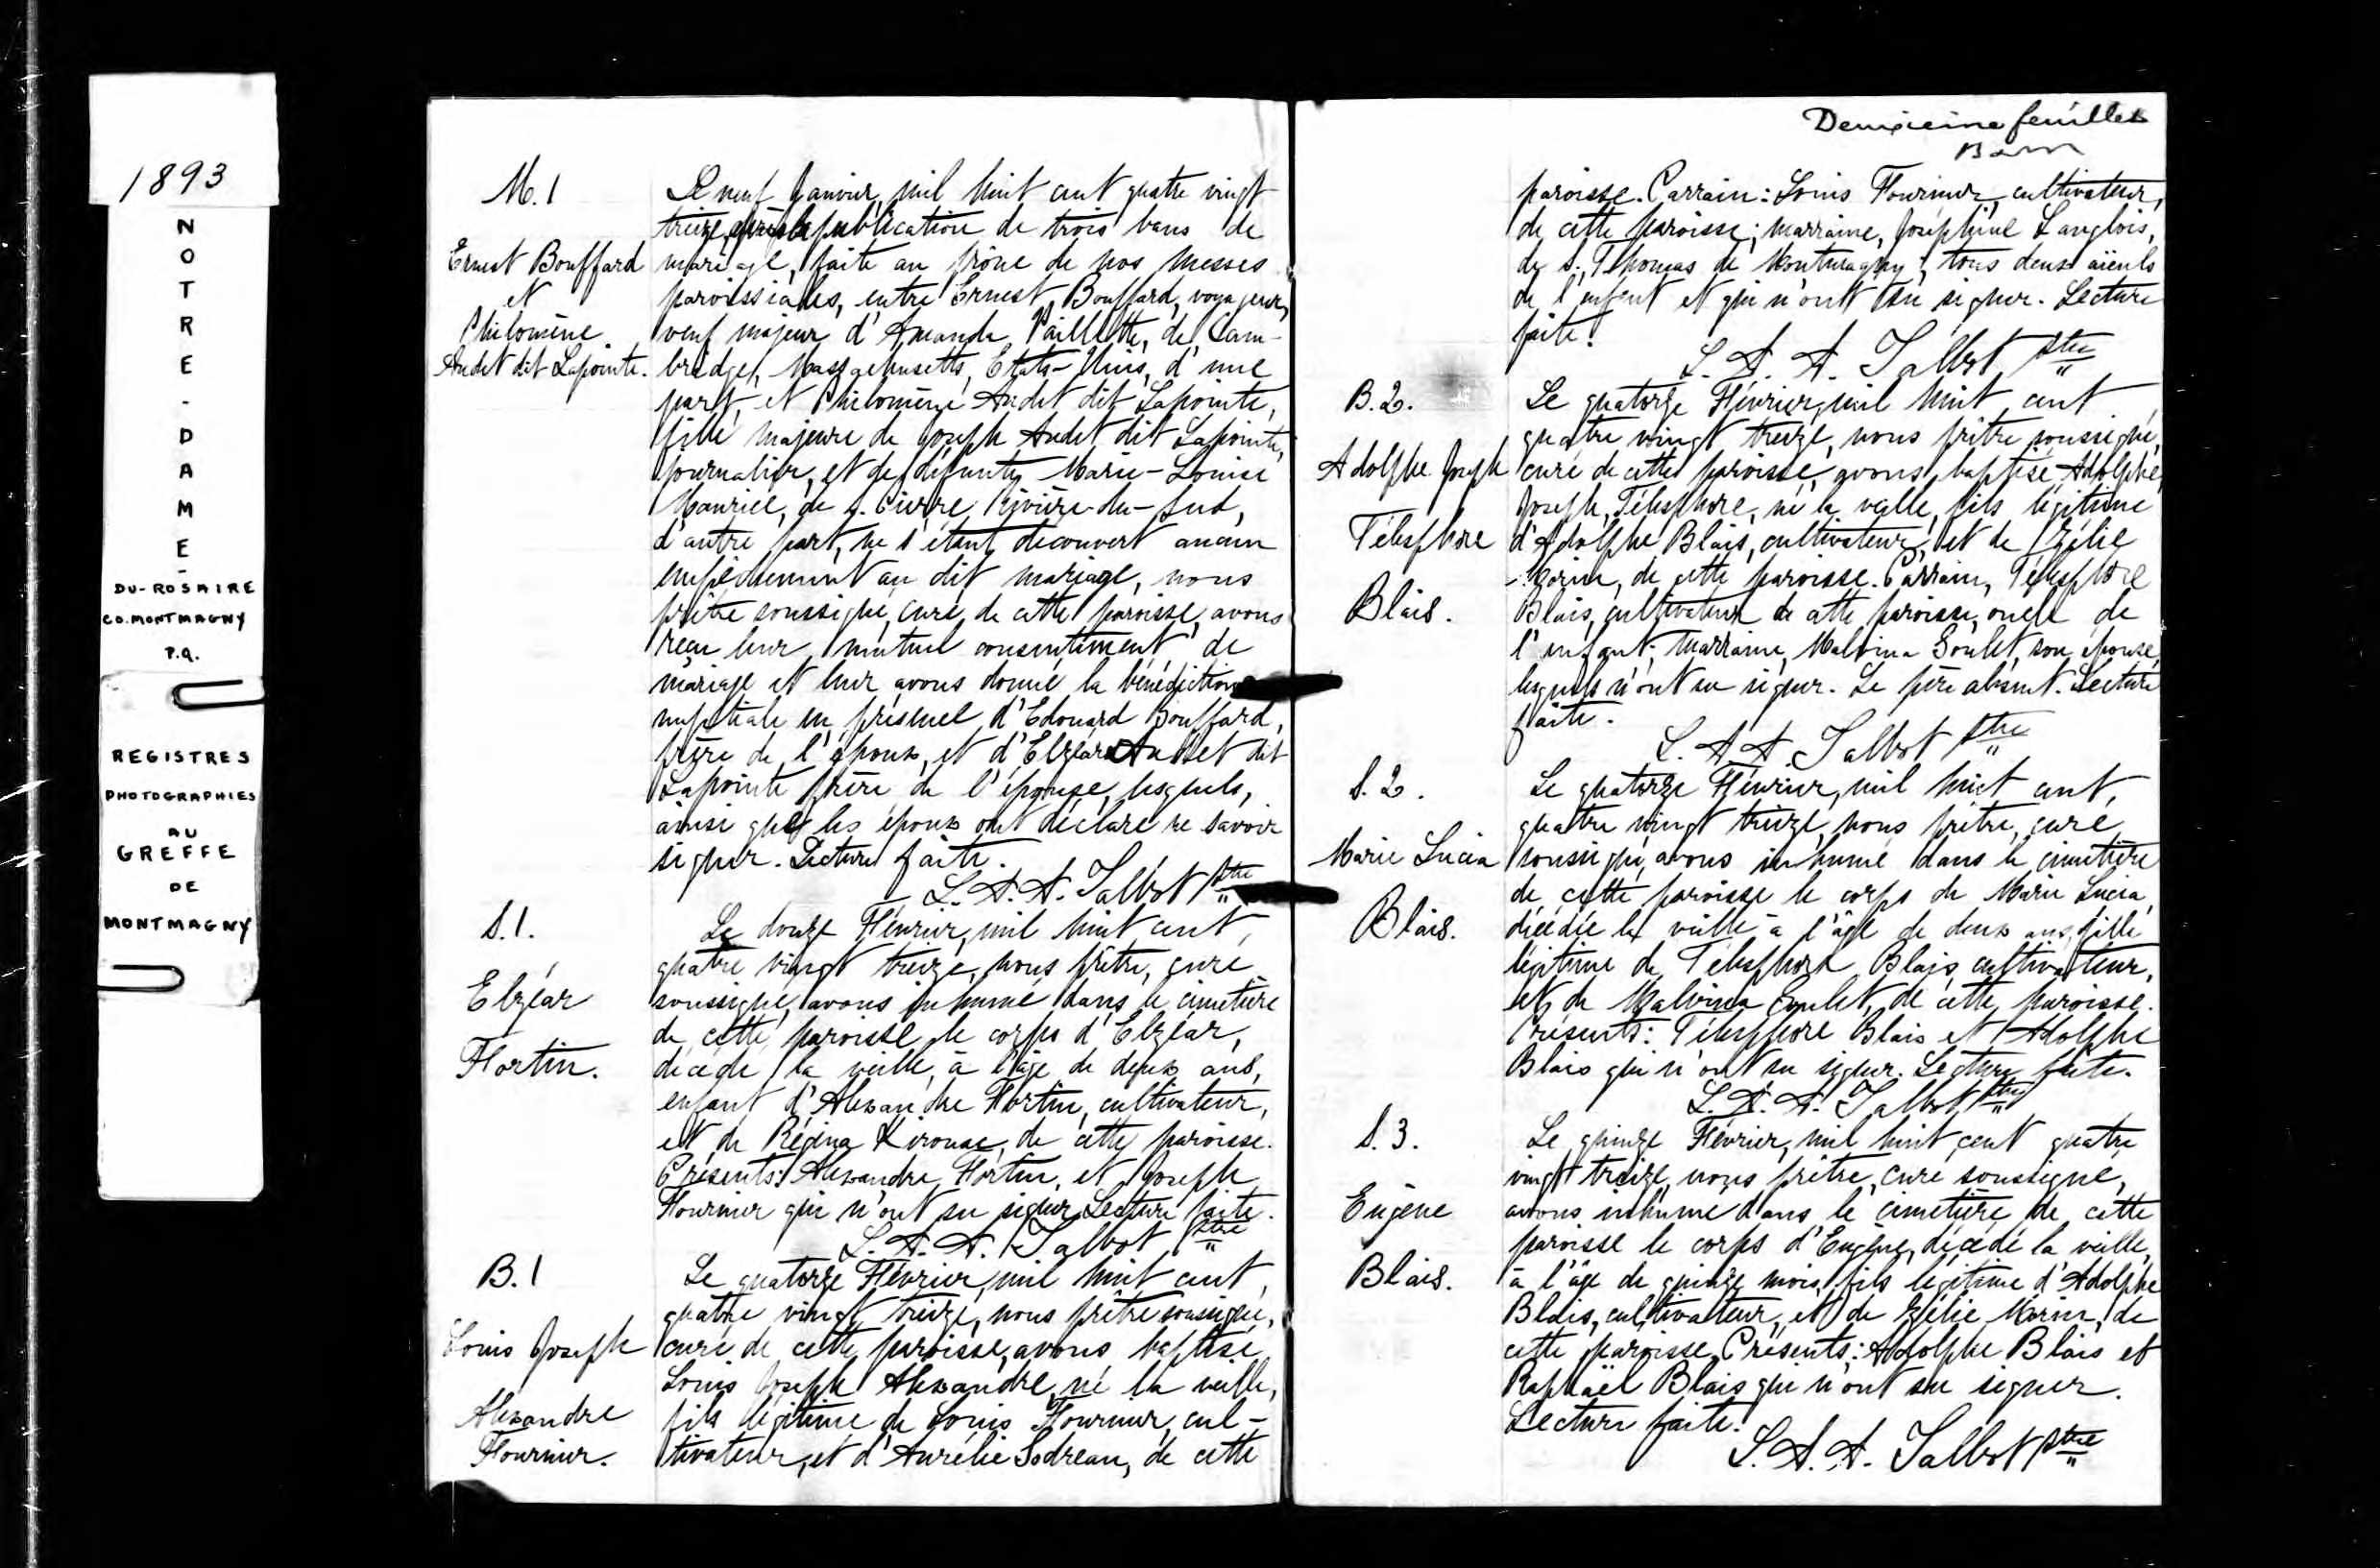 1893
NOTRE-DAME-
DU-ROSAIRE
CO.MONTMAGNY
P.Q.
REGISTRES
PHOTOGRAPHIES
AU
GREFFE
DE
MONTMAGNY
M. 1
Ernest Bouffard
et
Philomène
Audet dit Lapointe.
Le neuf Janvier, mil huit cent quatre vingt
treize, après la publication de trois bans de
mariage, faite au prône de nos messes
paroissiales, entre Ernest Bouffard, voyageur,
veuf majeur d'Amanda Paillette, de Cam-
bridge, Massachusetts, Etats-Unis, d'une
part, et Philomène Audet dit Lapointe,
fille majeure de Joseph Audet dit Lapointe,
journalier, et de défunte Marie-Louise
Mauricé, de s. Pierre Rivière-du-Sud,
d'autre part, ne s'étant découvert aucun
empêchement au dit mariage, nous
prêtre soussigné, curé de cette paroisse, avons
reçu leur mutuel consentement de
mariage et leur avons donné la bénédiction
nuptiale en présence d'Edouard Bouffard,
frère de l'époux, et d'Elzéar Audet dit
Lapointe frère de l'épouse, lesquels,
ainsi que les époux ont déclaré ne savoir
signer. Lecture faite.
L. A. A. Talbot Ptre
S. 1.
Elzéar
Fortin.
Le douze Février, mil huit cent,
quatre vingt treize, nous prêtre, curé
soussigné, avons inhumé dans le cimetière
de cette paroisse le corps d'Elzéar,
décédé la veille, à l'âge de deux ans,
enfant d'Alexandre Fortin, cultivateur,
et de Régina Kirouac, de cette paroisse.
Présents: Alexandre Fortin, et Joseph
Fournier qui n'ont su signer. Lecture faite.
L. A. A. Talbot Ptre
B. 1
Louis Joseph
Alexandre
Fournier.
Le quatorze Février, mil huit cent,
quatre vingt treize, nous prêtre soussigné,
curé de cette paroisse, avons baptisé
Louis Joseph Alexandre, né la veille,
fils légitime de Louis Fournier, cul-
tivateur, et d'Aurélie Sodreau, de cette
Deuxième feuillet
paroisse. Parrain: Louis Fournier, cultivateur,
de cette paroisse; marraine, Joséphine Langlois,
de s. Thomas de Montmagny, tous deux aïeuls
de l'enfant et qui n'ont su signer. Lecture
faite.
L. A. A. Talbot Ptre
B. 2.
Adolphe Joseph
Télesphore
Blais.
Le quatorze Février, mil huit cent
quatre vingt treize, nous prêtre soussigné,
curé de cette paroisse, avons baptisé Adolphe,
Joseph, Télesphore, né la veille, fils légitime
d'Adolphe Blais, cultivateur, et de Zélie
Morin, de cette paroisse. Parrain, Télesphore
Blais, cultivateur de cette paroisse, oncle de
l'enfant; marraine, Malvina Goulet, son épouse,
lesquels n'ont su signer. Le père absent. Lecture
faite.
L. A. A. Talbot Ptre
S. 2.
Marie Lucia
Blais.
Le quatorze Février, mil huit cent,
quatre vingt treize, nous prêtre, curé
soussigné, avons inhumé dans le cimetière
de cette paroisse le corps de Marie Lucia,
décédée la veille, à l'âge de deux ans, fille
légitime de Télesphore Blais, cultivateur,
et de Malvina Goulet, de cette paroisse.
Présents: Télesphore Blais et Adolphe
Blais qui n'ont su signer. Lecture faite.
L. A. A. Talbot Ptre
S. 3.
Eugène
Blais.
Le quinze Février, mil huit cent quatre
vingt treize, nous prêtre, curé soussigné,
avons inhumé dans le cimetière de cette
paroisse le corps d'Eugène, décédé la veille,
à l'âge de quinze mois, fils légitime d'Adolphe
Blais, cultivateur, et de Zélie Morin, de
cette paroisse. Présents: Adolphe Blais et
Raphaël Blais qui n'ont su signer.
Lecture faite.
L. A. A. Talbot Ptre